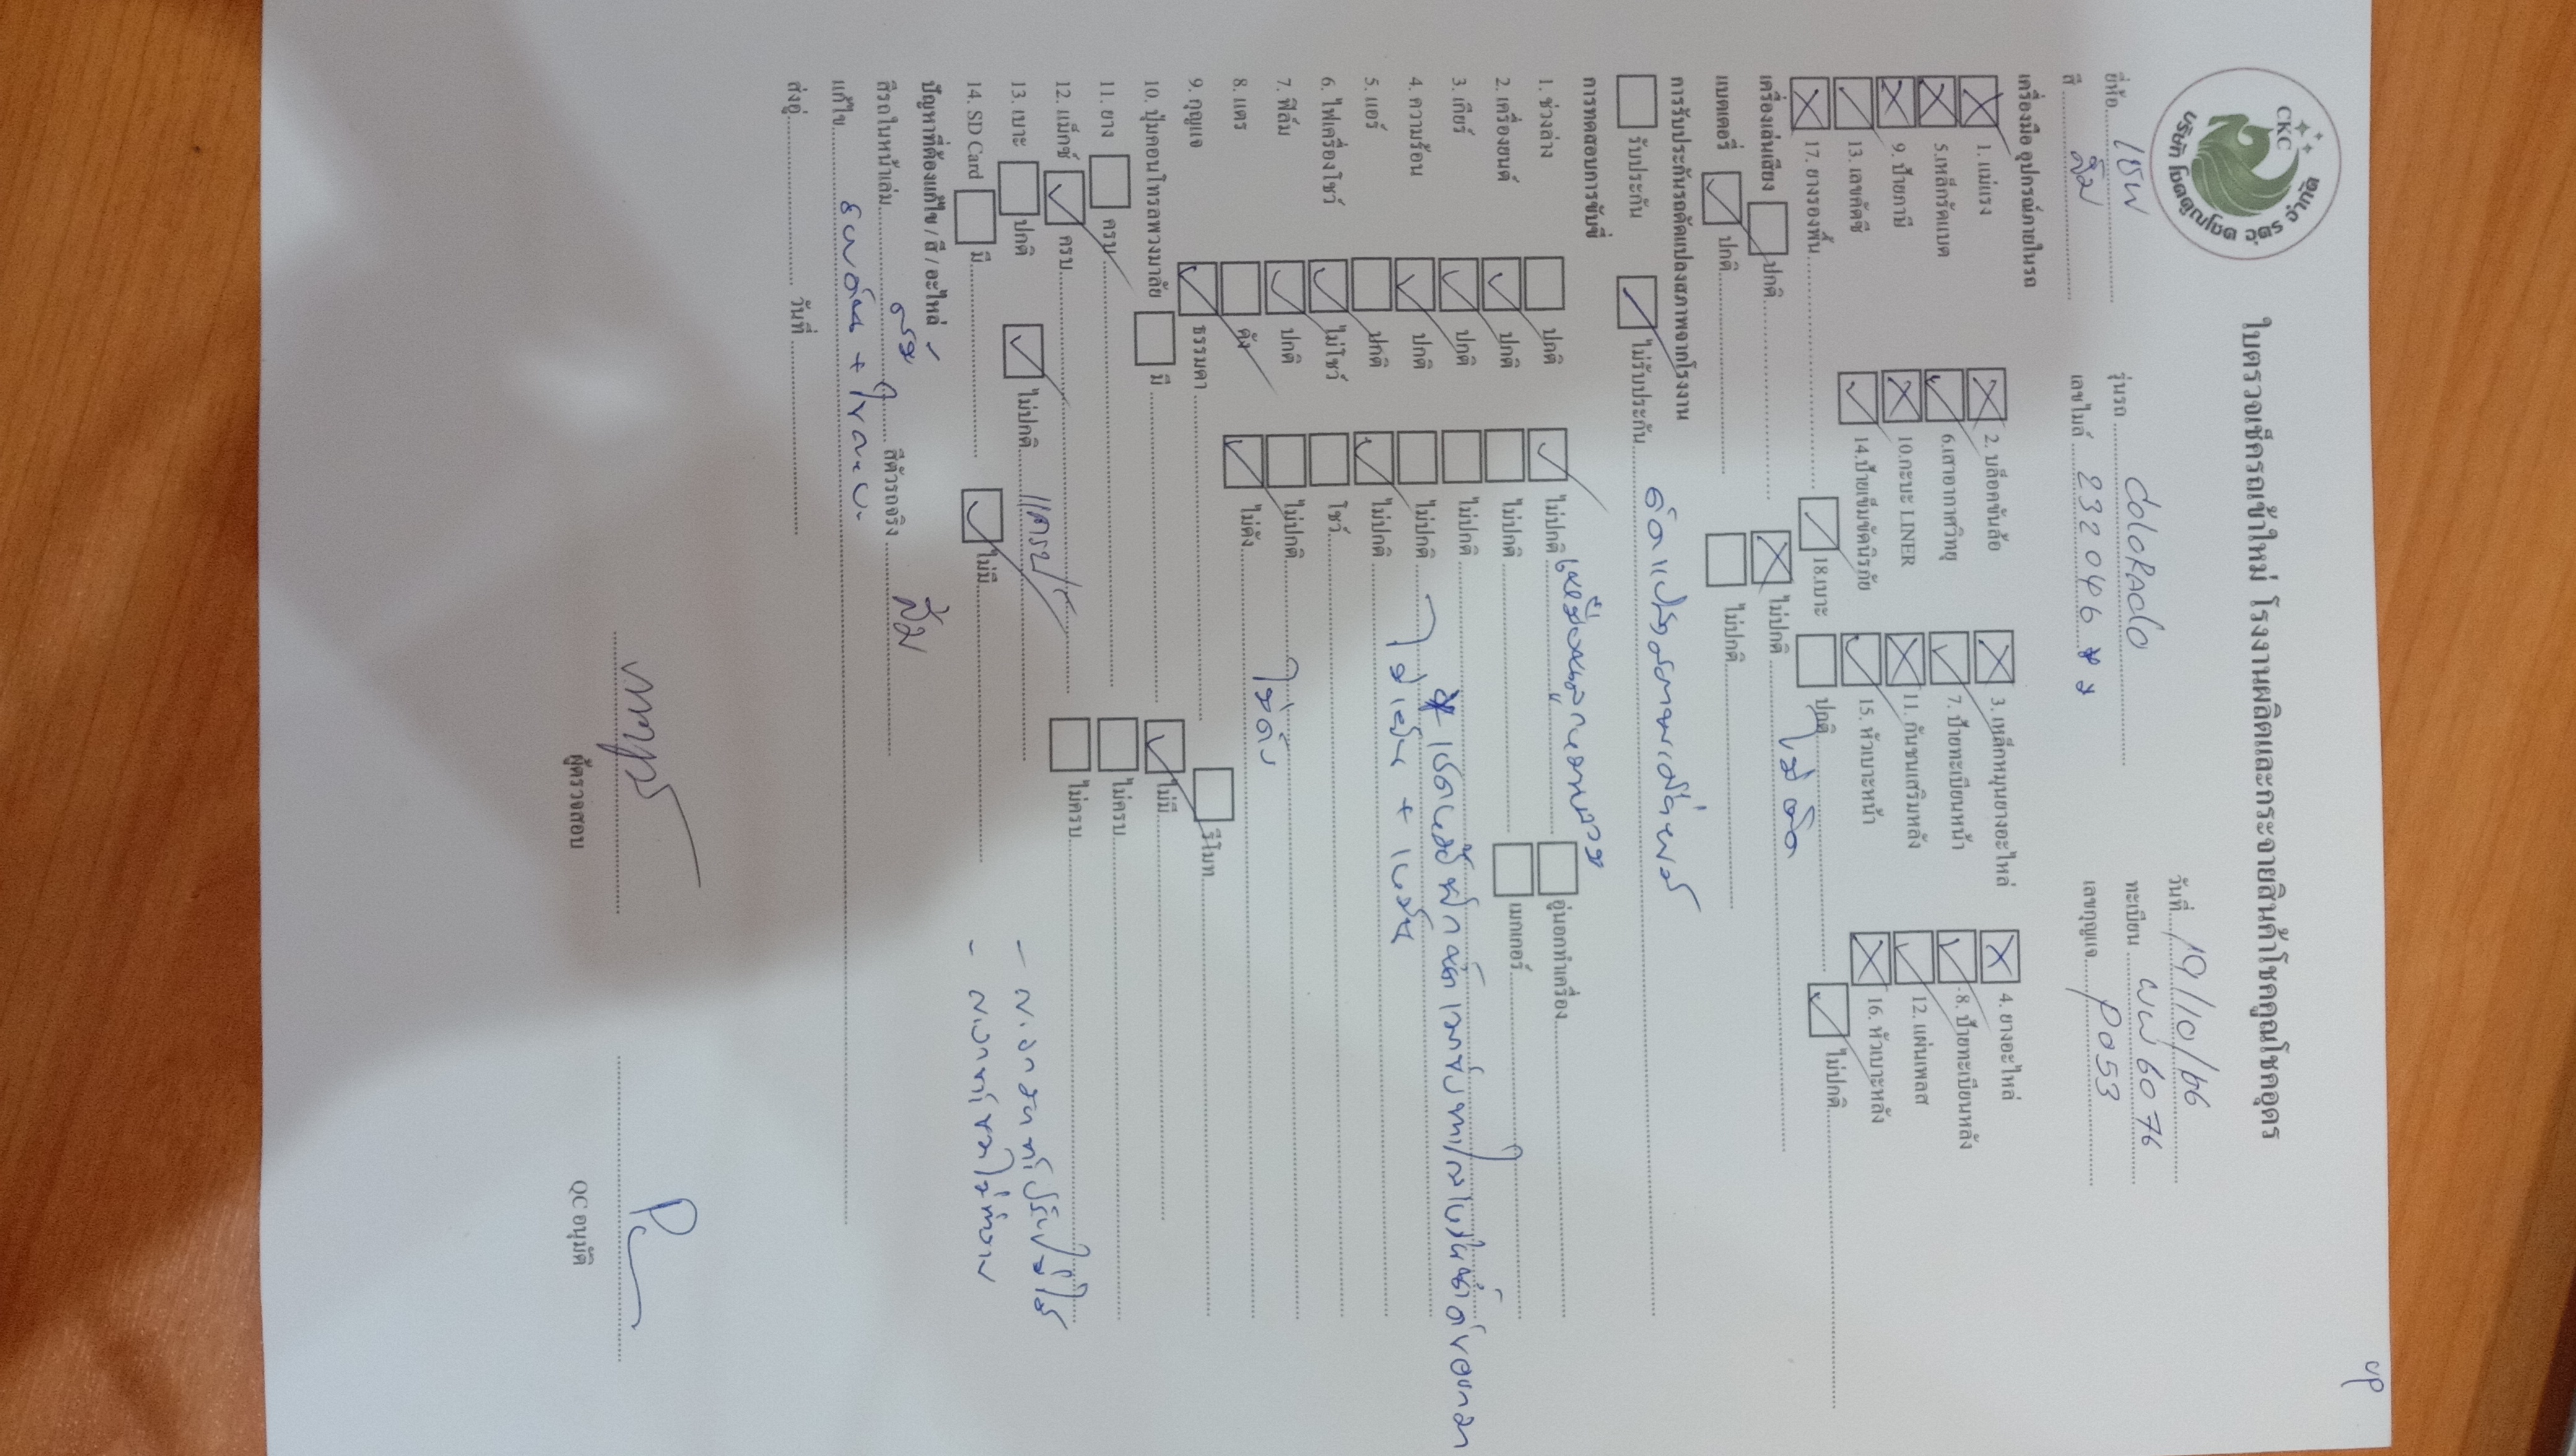 UP
CKC
บริษัท โชคคูณโชค อุดร จำกัด
ใบตรวจเช็ครถเข้าใหม่ โรงงานผลิตและกระจายสินค้าโชคคูณโชคอุดร
วันที่ 19/10/66
ยี่ห้อ เชฟ รุ่นรถ coloRAdo ทะเบียน ผผ 6076
สี ส้ม เลขไมล์ 232046 เลขกุญแจ P053
เครื่องมือ อุปกรณ์ภายในรถ
1. แม่แรง 2. บล็อคขันล้อ 3. เหล็กหมุนยางอะไหล่ 4. ยางอะไหล่
5.เหล็กรัดแบต 6.เสาอากาศวิทยุ 7. ป้ายทะเบียนหน้า 8. ป้ายทะเบียนหลัง
9. ป้ายภาษี 10.กะบะ LINER 11. กันชนเสริมหลัง 12. แผ่นเพลส
13. เลขคัตซี 14.ป้ายเข็มขัดนิรภัย 15. หัวเบาะหน้า 16. หัวเบาะหลัง
17. ยางรองพื้น 18.เบาะ ปกติ ไม่ปกติ
เครื่องเล่นเสียง ปกติ ไม่ปกติ ไม่ติด
แบตเตอรี่ ปกติ ไม่ปกติ
การรับประกันรถดัดแปลงสภาพจากโรงงาน
รับประกัน ไม่รับประกัน ดัดแปลงสภาพ
การทดสอบการขับขี่
1. ช่วงล่าง ปกติ ไม่ปกติ อู่นอกทำเครื่อง
2. เครื่องยนต์ ปกติ ไม่ปกติ เมกเกอร์
3. เกียร์ ปกติ ไม่ปกติ
4. ความร้อน ปกติ ไม่ปกติ
5. แอร์ ปกติ ไม่ปกติ ไม่เย็น + เหม็น
6. ไฟเครื่องโชว์ ไม่โชว์ โชว์
7. ฟิล์ม ปกติ ไม่ปกติ
8. แตร ดัง ไม่ดัง ไม่ดัง
9. กุญแจ ธรรมดา รีโมท
10. ปุ่มคอนโทรลพวงมาลัย มี ไม่มี
11. ยาง ครบ ไม่ครบ
12. แม็กซ์ ครบ ไม่ครบ
13. เบาะ ปกติ ไม่ปกติ
14. SD Card มี ไม่มี
ปัญหาที่ต้องแก้ไข / สี / อะไหล่
สีรถในหน้าเล่ม สีตัวรถจริง ส้ม
แก้ไข
ส่งอู่ วันที่
ผู้ตรวจสอบ QC อนุมัติ